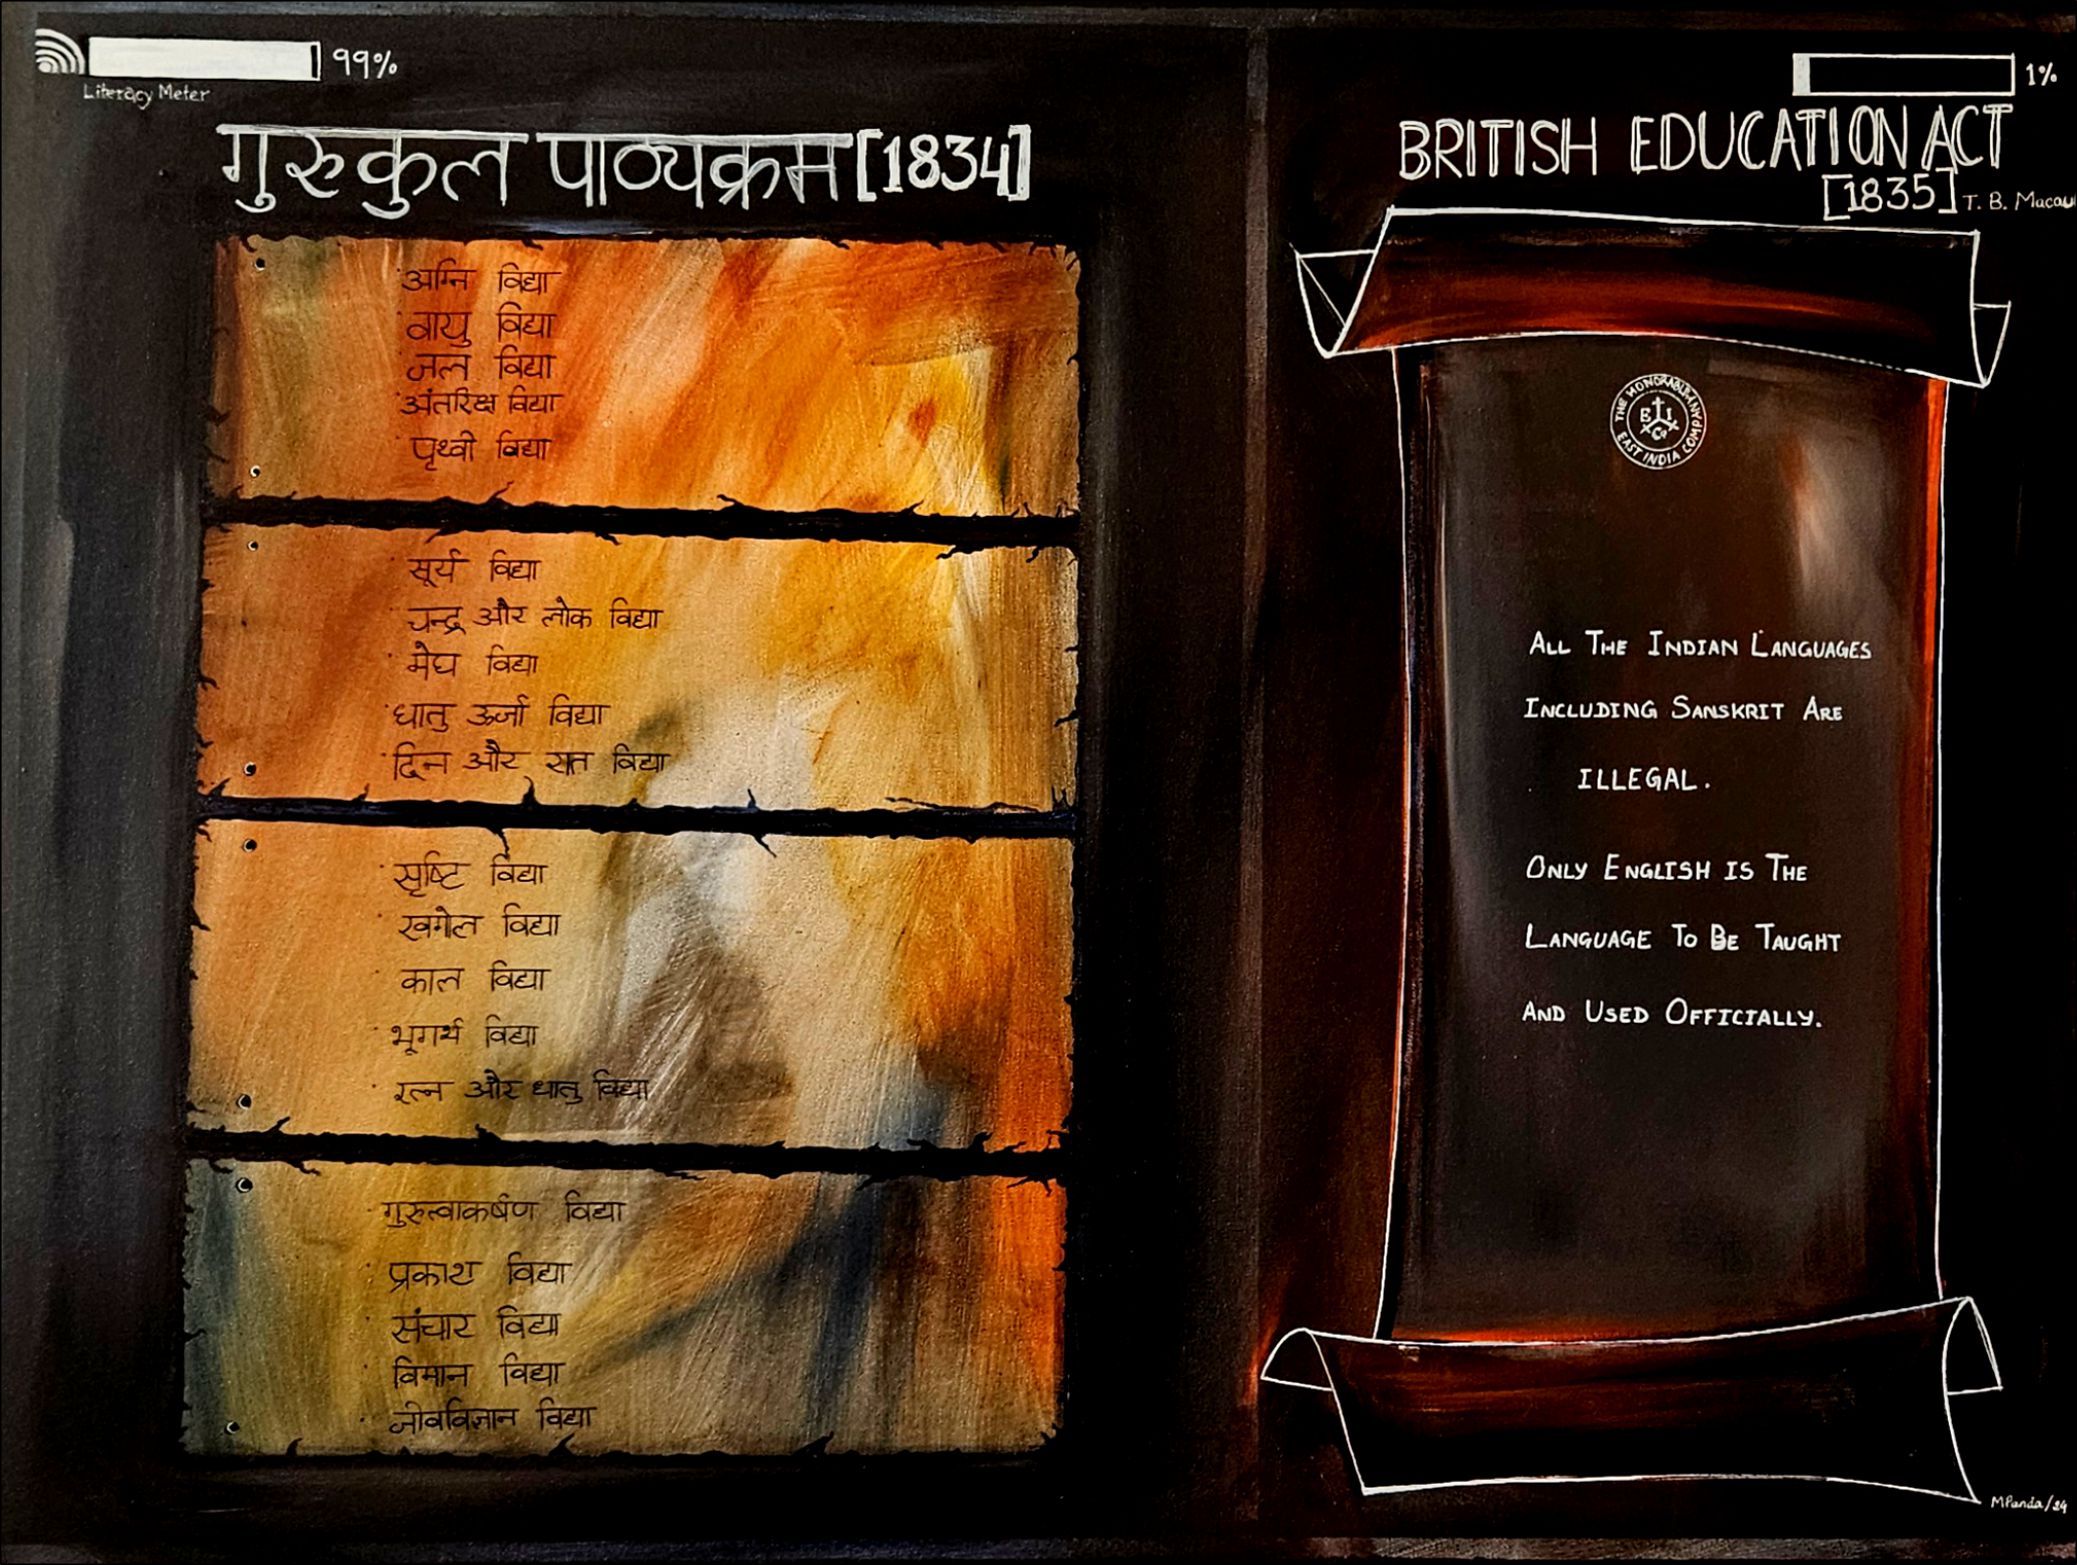 99%
Literacy Meter
गुरुकुल पाठ्यक्रम [1834]
अग्नि विद्या
वायु विद्या
जल विद्या
अंतरिक्ष विद्या
पृथ्वी विद्या
सूर्य विद्या
चन्द्र और लोक विद्या
मेघ विद्या
धातु ऊर्जा विद्या
दिन और रात विद्या
सृष्टि विद्या
खगोल विद्या
काल विद्या
भूगर्भ विद्या
रत्न और धातु विद्या
गुरुत्वाकर्षण विद्या
प्रकाश विद्या
संचार विद्या
विमान विद्या
जीवविज्ञान विद्या
1%
BRITISH EDUCATION ACT
[1835] T. B. Macau
THE HONORABLE
EAST INDIA COMPANY
E I Co
ALL THE INDIAN LANGUAGES
INCLUDING SANSKRIT ARE
ILLEGAL.
ONLY ENGLISH IS THE
LANGUAGE TO BE TAUGHT
AND USED OFFICIALLY.
MPanda/24